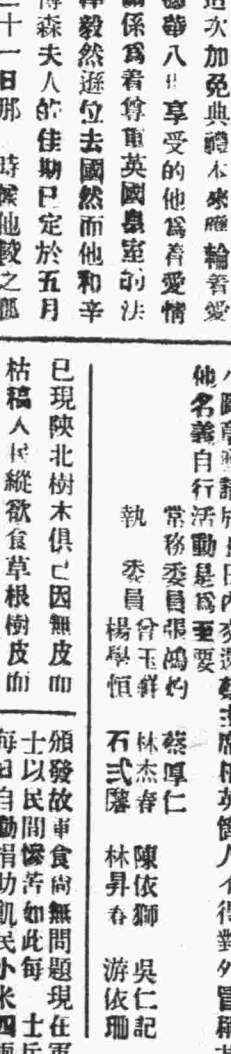 這次加免典禮本來應輪着愛
德華八世享受的他爲着愛情
關係爲着尊重英國皇室的法
律毅然遜位去國然而他和辛
博森夫人的佳期已定於五月
二十一日那 時候他較之郎
他名義自行活動是爲至要
常務委員張鴻灼 蔡厚仁
執 委員曾玉鮮 林杰春 陳依獅 吳仁記
楊學恒 石弍馨 林昇春 游依珊
已現陝北樹木俱已因無皮而
枯稿人民縱欲食草根樹皮而
頒發故軍食尙無問題現在軍
士以民間慘苦如此每 士兵
每日自動捐助飢民小米四兩